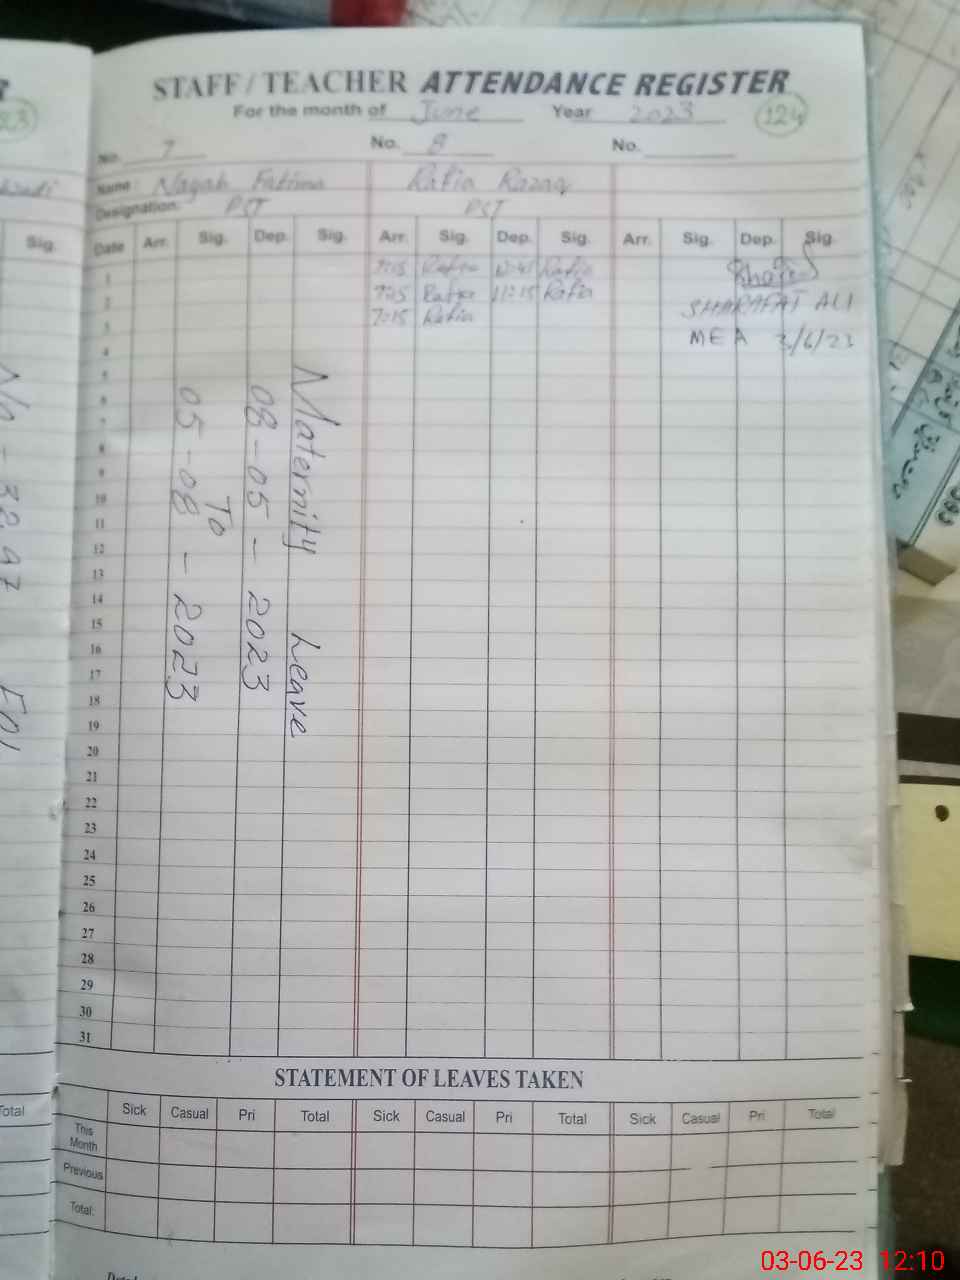 STAFF / TEACHER ATTENDANCE REGISTER
For the month of June Year 2023
124
No. 7 No. 8 No.
Name: Nayab Fatima Rafia Razaq
Designation: PST PST
Date Arr. Sig. Dep. Sig. Arr. Sig. Dep. Sig. Arr. Sig. Dep. Sig.
1 7:15 Rafia Rafia
2 Rafia 11:15 Rafia SHARAFAT ALI
3 7:15 Rafia MEA 3/6/23
4
5
6
7
8
9
10
11
12
13
14
15
16
17
18
19
20
21
22
23
24
25
26
27
28
29
30
31
Maternity Leave
08-05-2023
To
05-08-2023
STATEMENT OF LEAVES TAKEN
Sick Casual Pri Total Sick Casual Pri Total Sick Casual Pri Total
This Month
Previous
Total:
Sig.
Total
03-06-23 12:10